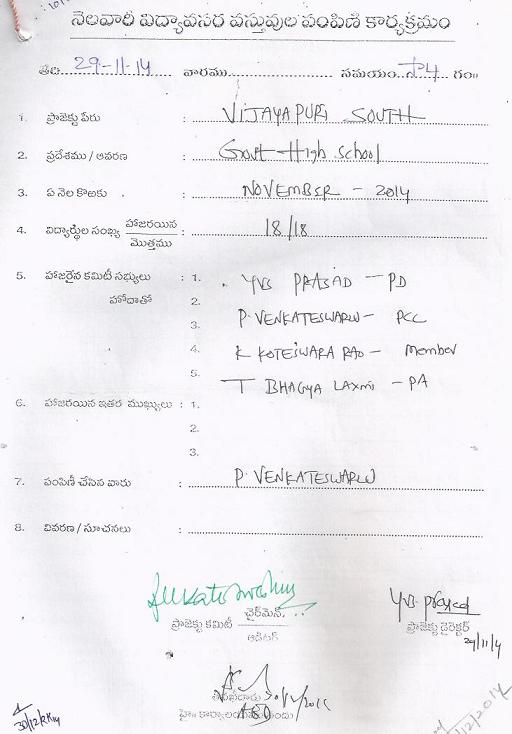 నెలవారీ విద్యావసర వస్తువుల పంపిణి కార్యక్రమం
తేది 29-11-14 వారము సమయం 4 గం॥
1. ప్రాజెక్టు పేరు : VIJAYAPURI SOUTH
2. ప్రదేశము / ఆవరణ : Govt High School
3. ఏ నెల కొఱకు : NOVEMBER - 2014
4. విద్యార్థుల సంఖ్య హాజరయిన / మొత్తము : 18/18
5. హాజరైన కమిటీ సభ్యులు : 1. YVS PRASAD - PD
హోదాతో 2.
3. P. VENKATESWARLU - PCC
4. K KOTESWARA RAO - Member
5. T BHAGYA LAXMI - PA
6. హాజరయిన ఇతర ముఖ్యులు : 1.
2.
3.
7. పంపిణీ చేసిన వారు : P. VENKATESWARLU
8. వివరణ / సూచనలు :
ప్రాజెక్టు కమిటీ చైర్‌మెన్
ఆడిటర్
YVS Prasad
ప్రాజెక్టు డైరెక్టర్
29/11/14
30/12/2014